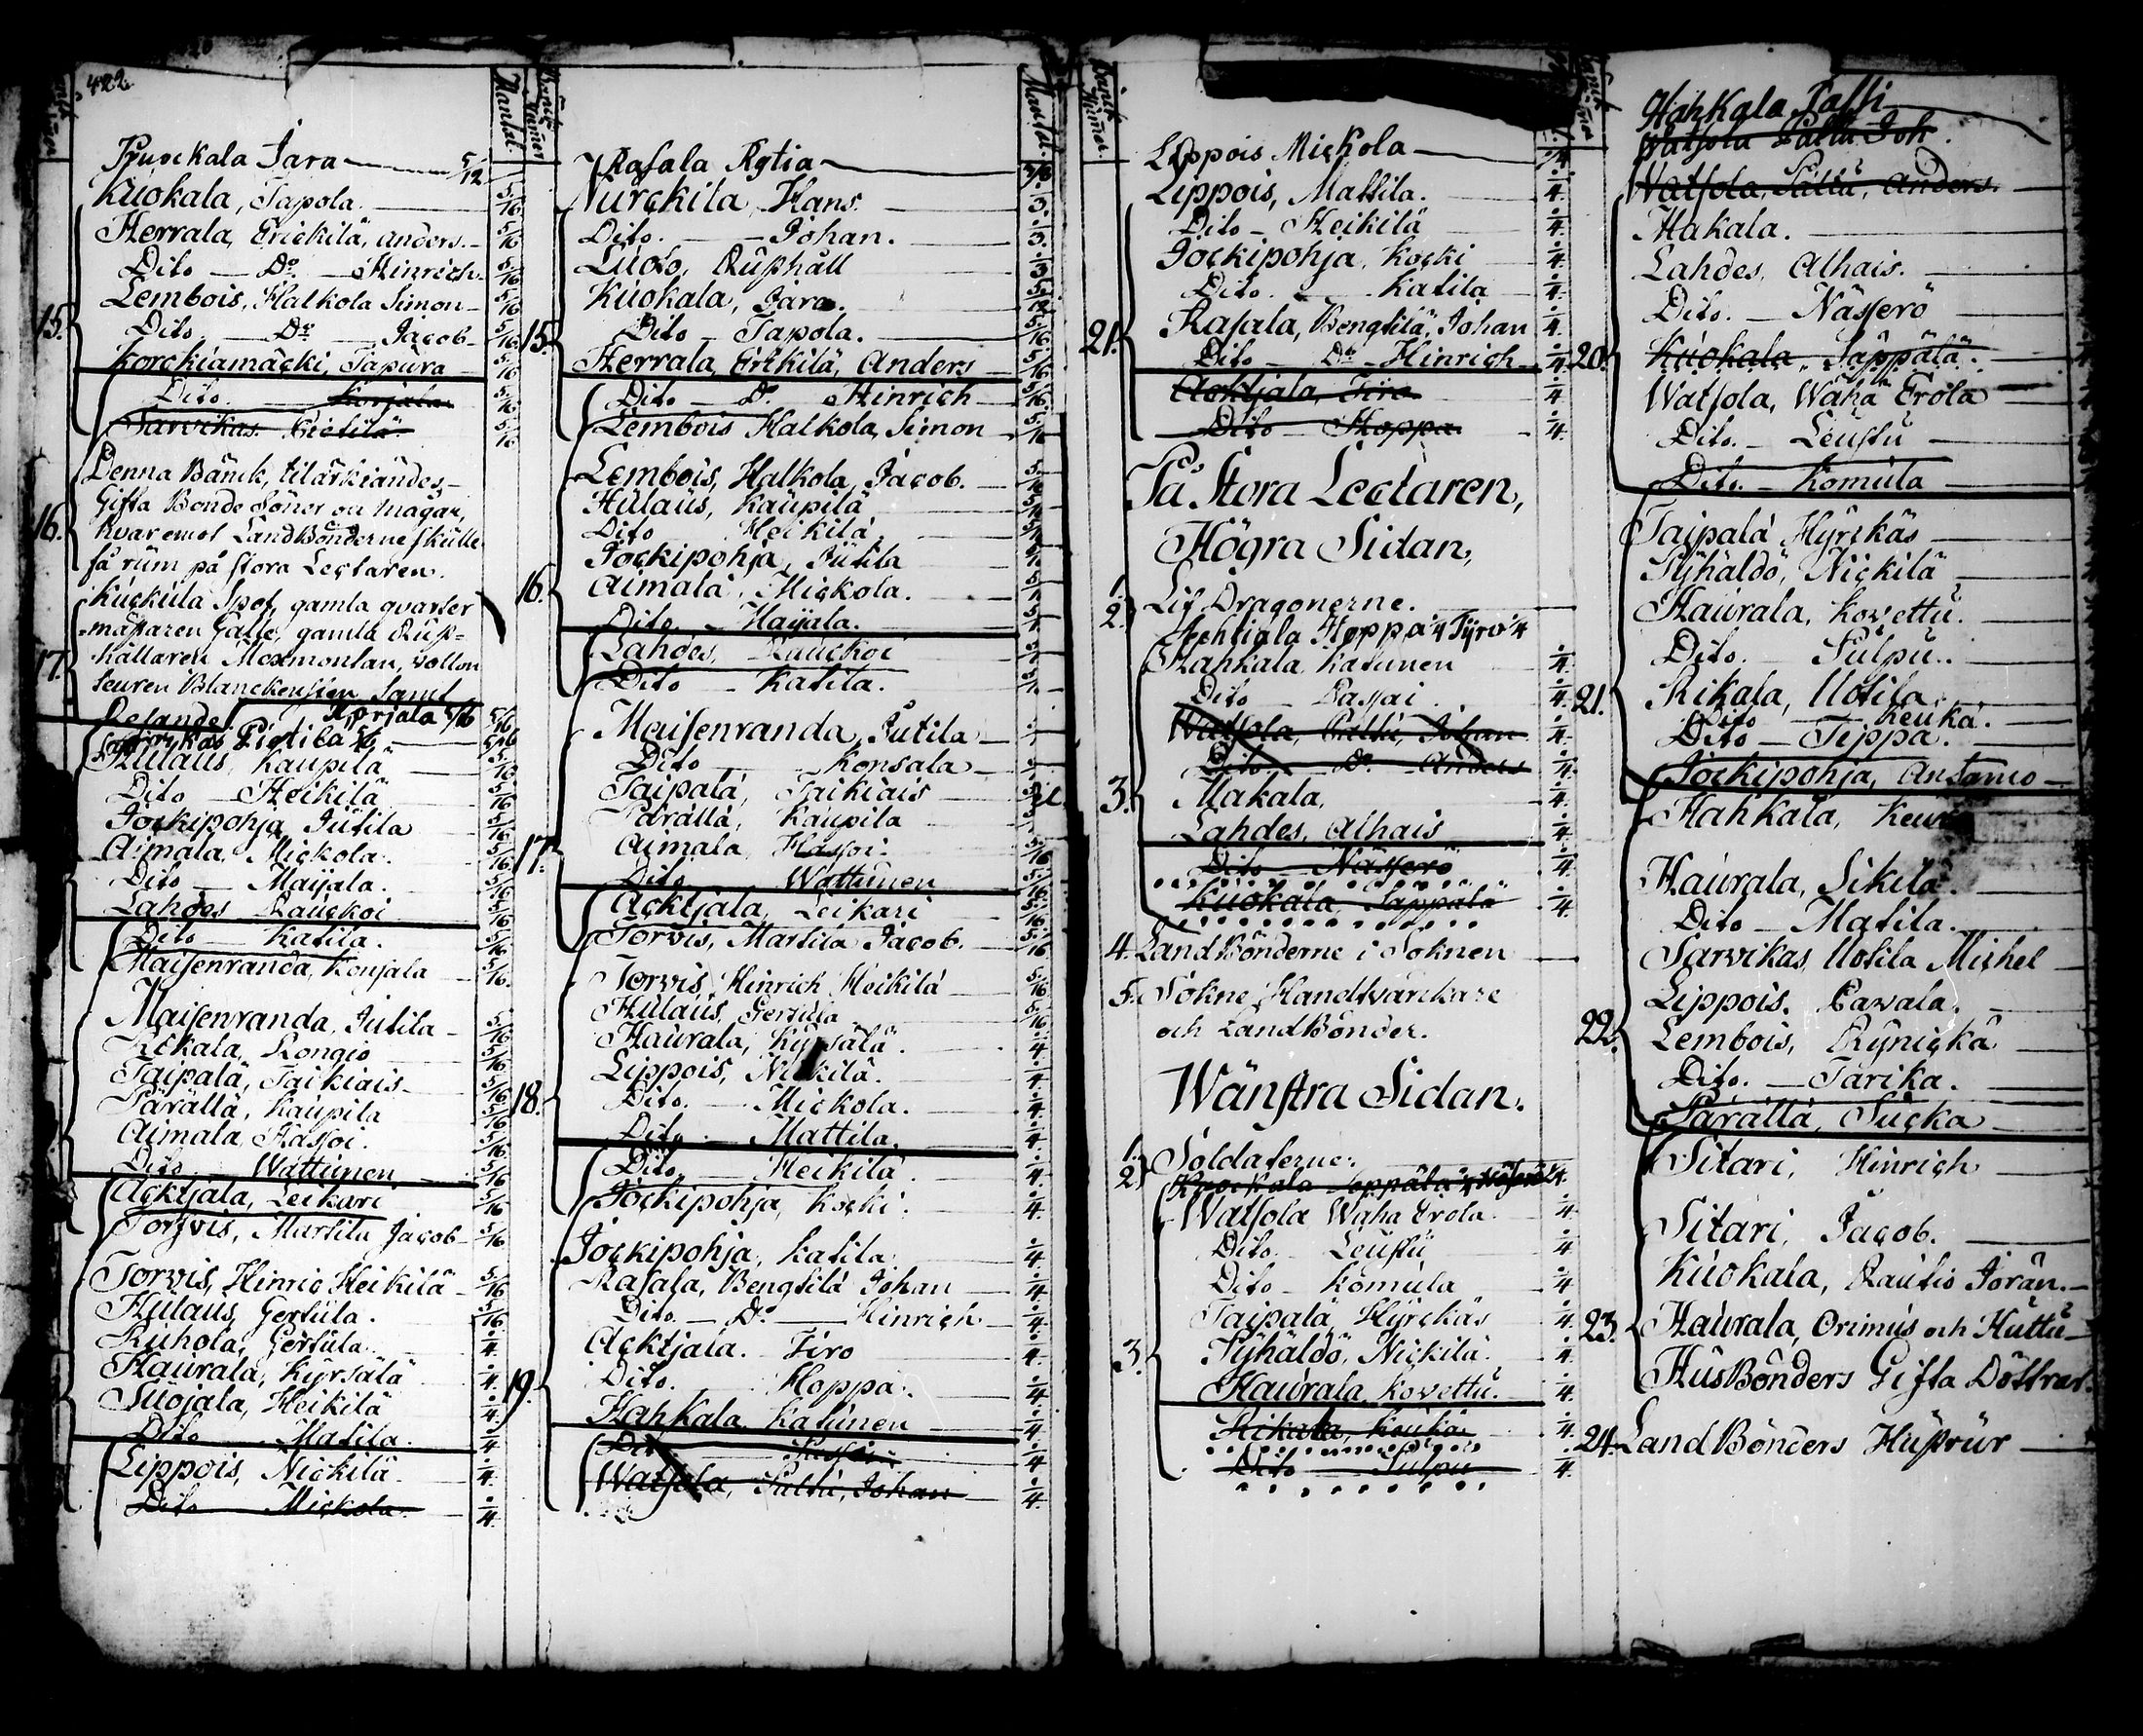 422.
Mantal.
Kuockala Jara 5/12
Kuokala, Tapola. 5/16
Herrala, Erickilä, Anders. 5/16
Dito — Do — Hinrich. 5/16
Lembois, Halkola Simon 5/16
15. Dito — Do — Jacob 5/16
Korckiamäcki, Tapura 5/16
Dito. Korjala 5/16
Sarvikas Pietilä 5/16
Denna Bänck, tilärkiändes
Gifta Bonde Söner ou mågar,
16. hvaremot LandBönderne skulle
få rum på stora Lectaren.
Kuckula Spof, gamla quarter
mästaren Galle, gamla Rus-
17. hållaren Moxmontan, vollon
teuren Blanckensten samt
Resande. Korjala 5/16
Sarvikas Pietila 5/16
Hulaus, Kaupila 5/16
Dito — Heikilä 5/16
Jockipohja Jutila 5/16
Aimala, Mickola. 5/16
Dito — Maijala. 5/16
Lahdes Rauckoi 5/16
Dito — Katila. 5/16
Maisenranda, Konsala 5/16
Maisenranda, Jutila 5/16
Rekala, Rongio 5/16
Taipalä, Taikiais 5/16
Särällä, Kaupila 5/16
Aimala, Hassoi. 5/16
Dito. Wattunen 5/16
Acktjala, Leikari 5/16
Torvis, Martila Jacob 5/16
Torvis, Hinric Heikilä 5/16
Hulaus, Gertula. 5/16
Ruhola, Gertula. 1/4
Haurala, Kyrsälä 1/4
Suojala, Heikilä 1/4
Dito Matila. 1/4
Lippois, Nickilä 1/4
Dito Mickola. 1/4
Mantal.
Rasala Rytia 3/8
Nurckila Hans. 1/3.
Dito. — Johan. 1/3.
Ludo, Rushåll 1/3
Kuokala, Jara. 5/12
15. Dito — Tapola. 5/16
Herrala, Erkilä, Anders 5/16
Dito — D. Hinrich 5/16
Lembois Halkola, Simon
Lembois, Halkola, Jacob.
Hulaus, Kaupilä
Dito Heikilä
Jockipohja, Jutila
16. Aimala, Mickola.
Dito. Maijala.
Lahdes, Rauckoi
Dito — Katila.
Maisenranda, Jutila
Dito Konsala
Taipalä, Taikiais
Särällä, Kaupila
17. Aimala, Hassoi. 5/16
Dito Wattunen 5/16
Acktjala, Leikari 5/16
Torvis, Martila Jacob. 5/16
Torvis Hinrich Heikilä 5/16
Hulaus, Gertula 5/16
Haurala, Kyrsälä. 1/4
Lippois, Nickilä. 1/4
18. Dito. — Mickola. 1/4
Dito. — Mattila. 1/4
Dito. — Heikilä. 1/4
Jockipohja, Kocki. 1/4
Jockipohja, Katila 1/4
Rasala, Bengtilä Johan 1/4
Dito. — Do — Hinrich 1/4
Acktjala. Firo 1/4
19. Dito. Hoppa. 1/4
Hahkala Katunen 1/4
Dito 1/4
Watsola, Paltu, Johan 1/4
Lippois Mickola 1/4
Lippois, Mattila. 1/4
Dito — Heikilä 1/4
Jockipohja, Kocki 1/4
Dito. Katila 1/4
Rasala, Bengtilä, Johan 1/4
21. Dito — Do — Hinrich 1/4
Acktjala, Firo 1/4
Dito — Hoppa. 1/4
På Stora Lectaren,
Högra Sidan,
1.
2. Lif Dragonerne.
Achtiala Hoppa 1/4 Tyro 1/4
Hahkala, Katunen 1/4
Dito Passai 1/4
Watsola, Paltu, Johan 1/4
Dito. Do. Anders 1/4
3. Makala, 1/4
Lahdes, Alhais 1/4
Dito — Nässerö 1/4
Kuokala, Säppälä 1/4
4. LandBönderne i Soknen
5. Sokne Handtvärckare
och LandBönder.
Wänstra Sidan.
1.
2. Soldaterne.
Kuockala Seppälä 1/4 Näserö 1/4
Watsola Waha Erola 1/4
Dito. Leustu 1/4
Dito Komula 1/4
Taipalä, Hyrckäs 1/4
3. Syhäldö, Nickilä. 1/4
Haurala, Kovettu. 1/4
Rikala, Keuka. 1/4
Dito — Sulpu 1/4
Hahkala Paltti
Watsola Paltu Joh.
Watsola, Paltu, Anders.
Makala.
Lahdes, Alhais.
Dito. — Nässerö
20. Kuokala, Säppälä.
Watsola, Wäha Erola
Dito. — Leustu
Dito. — Komula
Taipalä Hyrckäs
Syhäldö, Nickilä
Haurala, Kovettu.
Dito. Sulpu.
21. Rikala, Uotila
Dito — Keuka.
Dito — Teppa.
Jockipohja, Antamo
Hahkala,
Haurala, Sikila.
Dito — Matila.
Sarvikas, Uotila Michel
Lippois. Pavala.
22. Lembois, Rynickä
Dito. — Tarika.
Särällä, Sucka
Sitari, Hinrich
Sitari, Jacob.
Kuokala, Rautio Jöran.
23. Haurala, Orimus och Huttu
HusBönders Gifta Döttrar.
24. LandBönders Hustrur